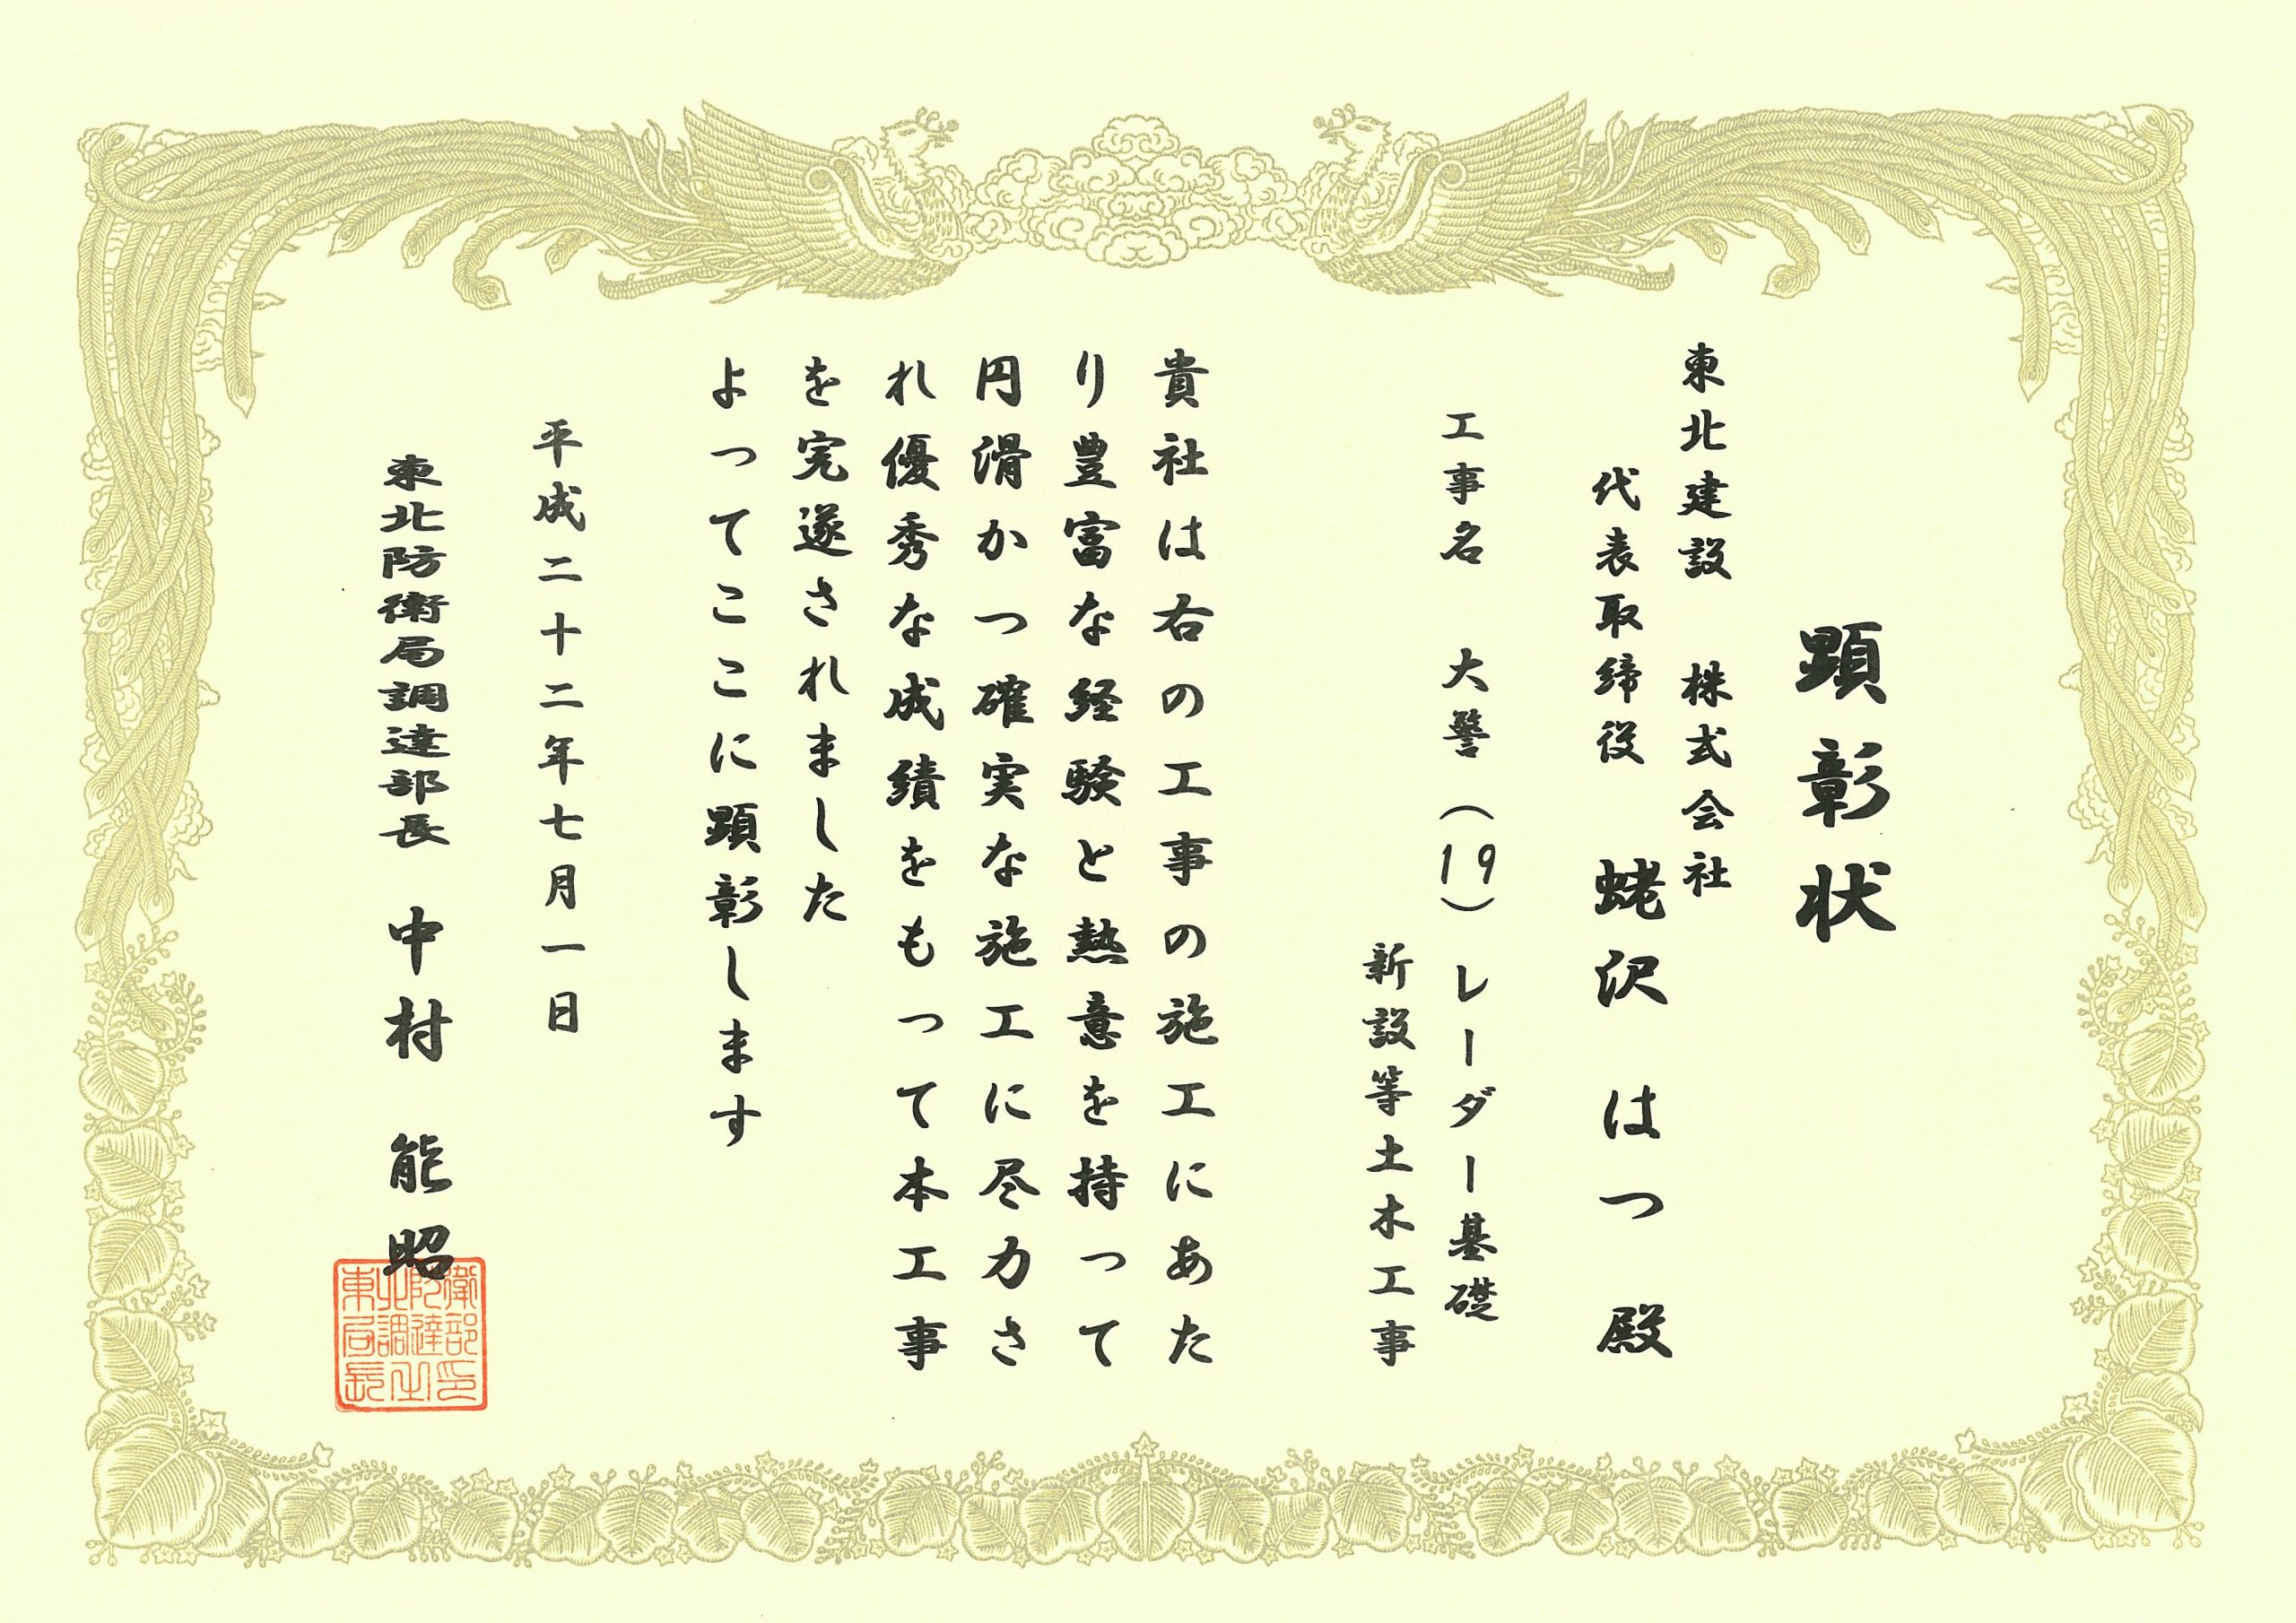 顕彰状
東北建設 株式会社
代表取締役 蛯沢 はつ 殿
工事名 大警(19)レーダー基礎
新設等土木工事
貴社は右の工事の施工にあた
り豊富な経験と熱意を持って
円滑かつ確実な施工に尽力さ
れ優秀な成績をもって本工事
を完遂されました
よってここに顕彰します
平成二十二年七月一日
東北防衛局調達部長 中村 能昭
東北防衛
局調達部
長之印